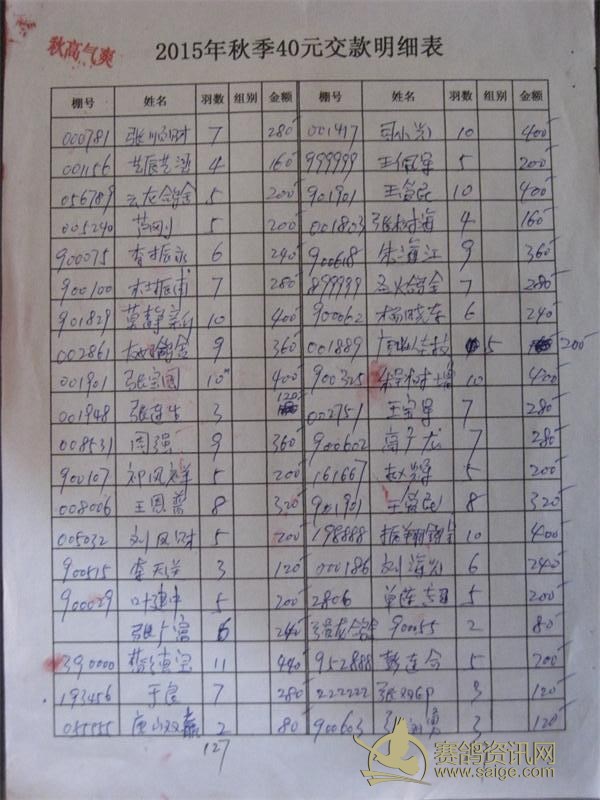 秋高气爽
2015年秋季40元交款明细表
棚号 姓名 羽数 组别 金额 棚号 姓名 羽数 组别 金额
000781 张顺财 7 280 001417 小兴 10 400
001156 艺辰艺鸿 4 160 999999 王佩军 5 200
056789 云龙鸽舍 5 200 901901 王管民 10 400
005240 刚 5 200 001803 张树海 4 160
900075 李振永 6 240 900618 朱海江 9 360
900100 杜振甫 7 280 899999 烈火鸽舍 7 280
901829 10 400 900062 杨晓东 6 240
002861 鸽舍 9 360 001889 5 200
001901 张宝国 10 400 900325 树增 10 400
001948 张连生 3 120 002751 王宝军 7 280
008531 周强 9 360 900602 高子龙 7 280
900107 祁凤祥 5 200 161667 赵辉 5 200
008006 王恩普 8 320 901901 王管民 8 320
005032 刘凤财 5 200 198888 振翔鸽舍 10 400
900515 李天洋 3 120 000186 刘海兴 6 240
900029 叶建中 5 200 2806 单陈志国 5 200
张广富 6 240 龙鸽舍 90055 2 80
390000 宝 11 440 952888 彭连合 5 200
193456 于良 7 280 222222 张双 3 120
055555 唐山双赢 2 80 900603 张 勇 3 120
127
赛鸽资讯网
www.saige.com